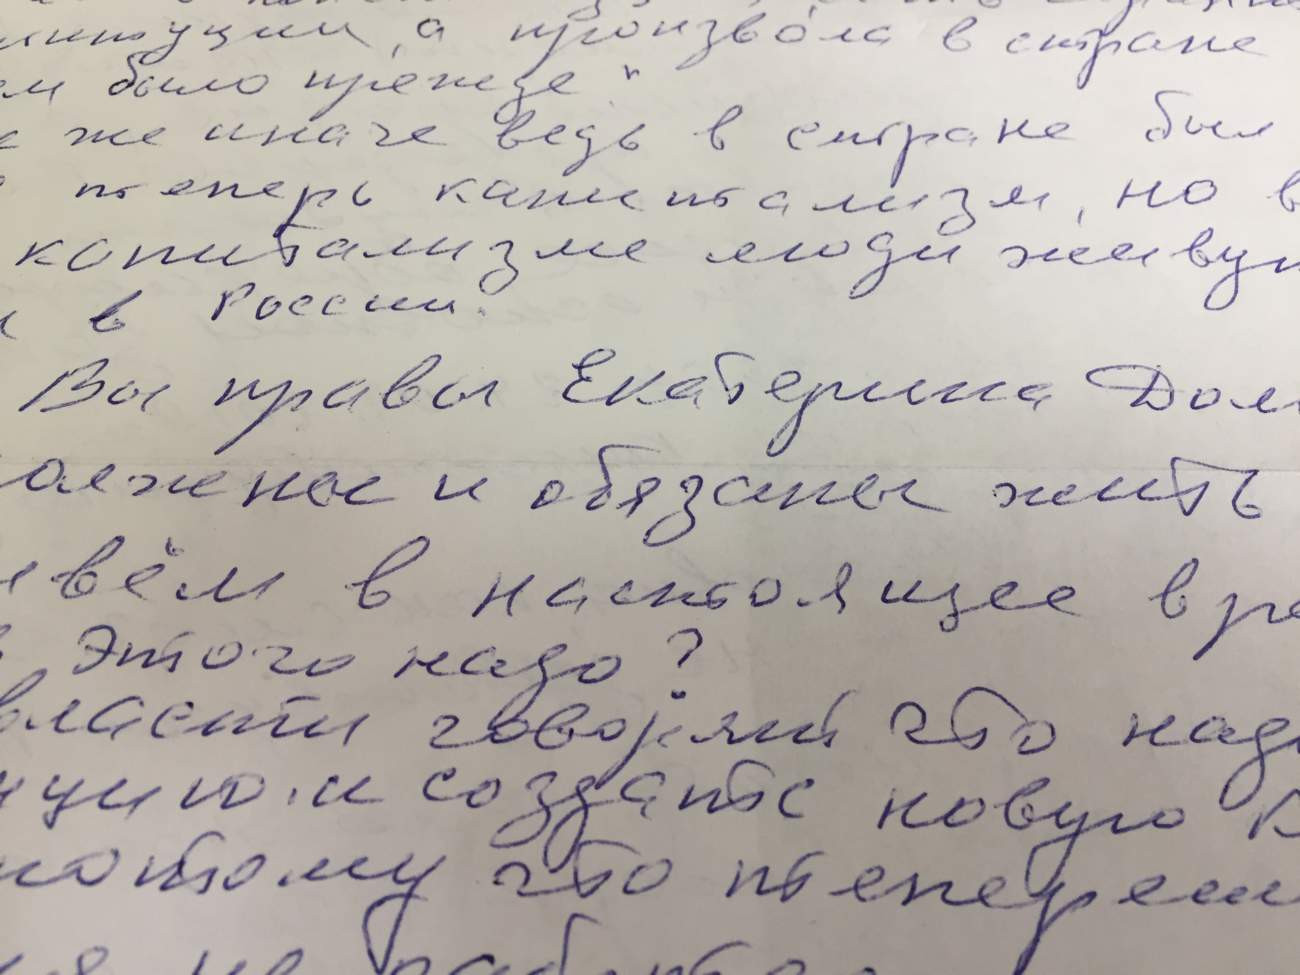 нституции, а произвола в стране
ем было прежде"
же иначе ведь в стране был
теперь капитализм, но в
капитализме люди живут
и в России.
Вы правы Екатерина Дол
олжены и обязаны жить
ивём в настоящее вре
в этого надо?
власти говорят что надо
нцию и создать новую В
потому что теперешн
не работа